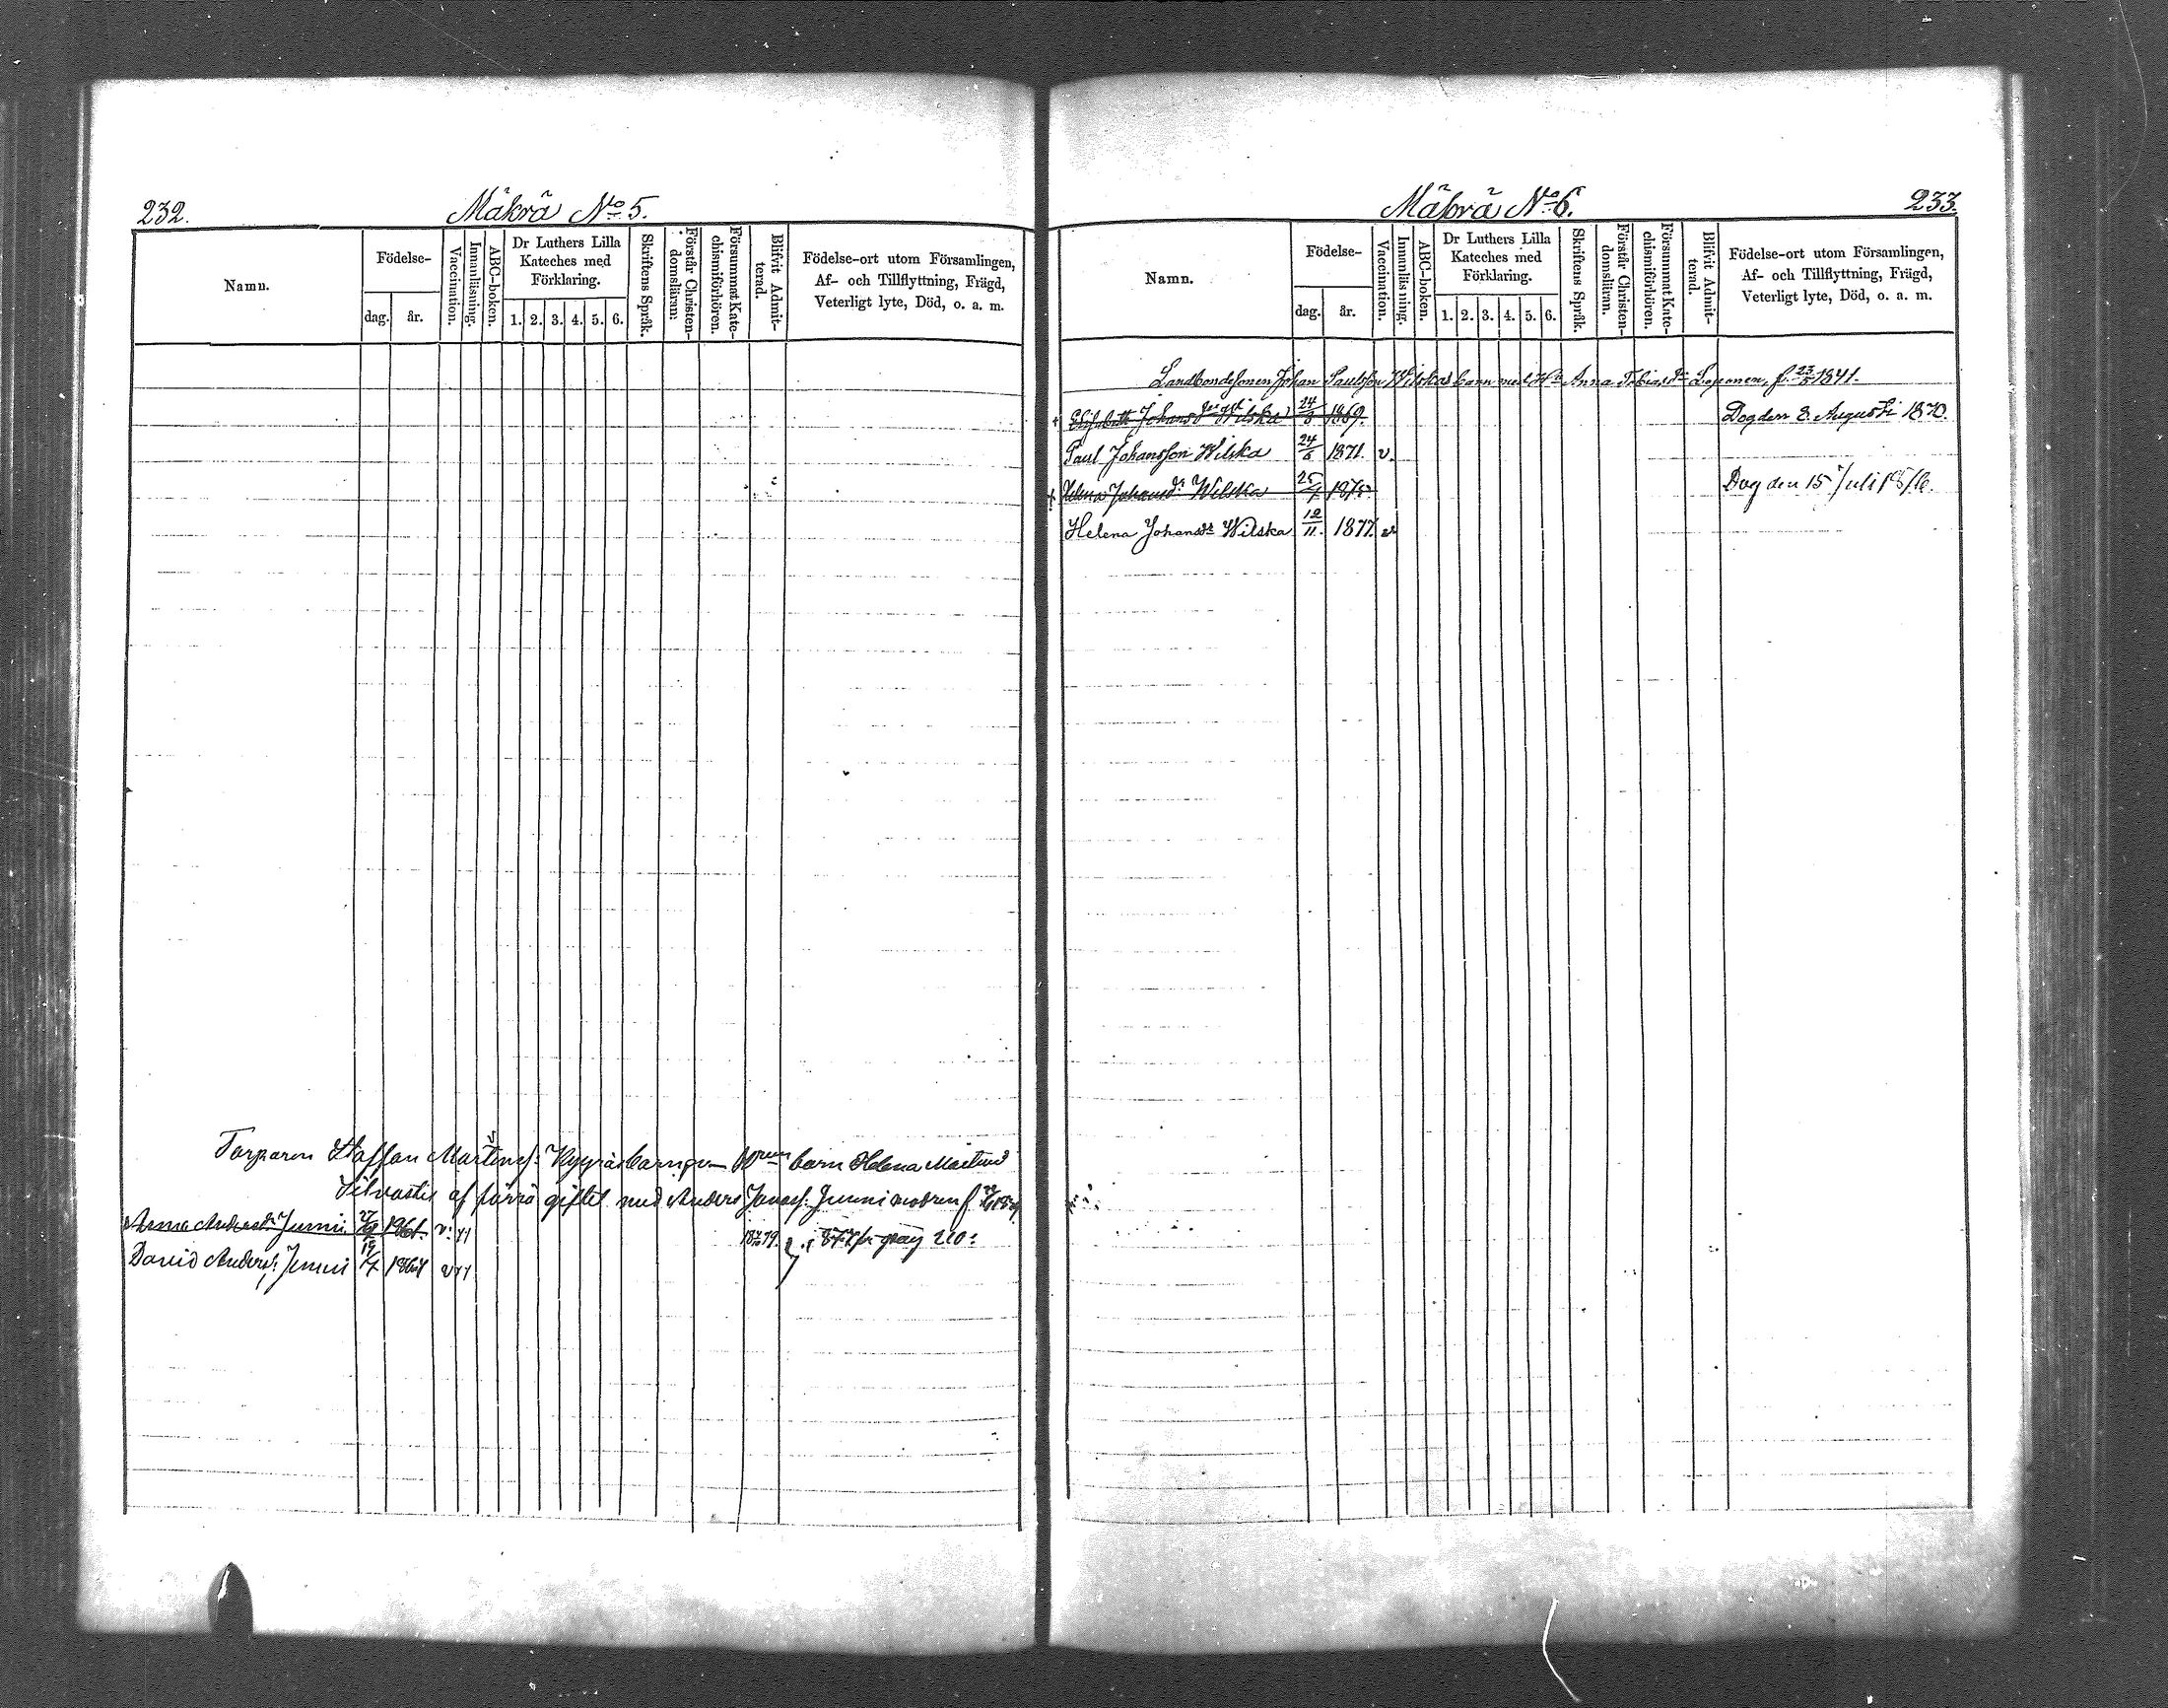 232.
Mäkrä No 5.
Namn.
Födelse-
dag.
år.
Vaccination.
Innanläsning.
ABC-boken.
Dr Luthers Lilla
Kateches med
Förklaring.
1. 2. 3. 4. 5. 6.
Skriftens Språk.
Förstår Christen-
domsläran:
Försummat Kate-
chismiförhören.
Blifvit Admit-
terad.
Födelse-ort utom Församlingen,
Af- och Tillflyttning, Frägd,
Veterligt lyte, Död, o. a. m.
Torparen Staffan Martins: barn Helena Martins
af förra giftet med Anders Junni modren f.
Anna Andersdr Junni 1861. v.
David Anders: Junni 19/7 1864 v
Mäkrä No 6.
233.
Namn.
Födelse-
dag.
år.
Vaccination.
Innanläsning.
ABC-boken.
Dr Luthers Lilla
Kateches med
Förklaring.
1. 2. 3. 4. 5. 6.
Skriftens Språk.
Förstår Christen-
domsläran.
Försummat Kate-
chismiförhören.
Blifvit Admit-
terad.
Födelse-ort utom Församlingen,
Af- och Tillflyttning, Frägd,
Veterligt lyte, Död, o. a. m.
Landbondesonen Johan Paulsson Wilskas barn med H. Anna Tobiasdr Loponen, f. 1841.
+ Elisabeth Johansdr Wilska 24/8 1869. Dog den 2. Augusti 1870.
Paul Johansson Wilska 24/6 1871. v.
+ Helena Johansdr Wilska 25/4 1875 Dog den 15 Juli
Helena Johansdr Wilska 12/11. 1877. v